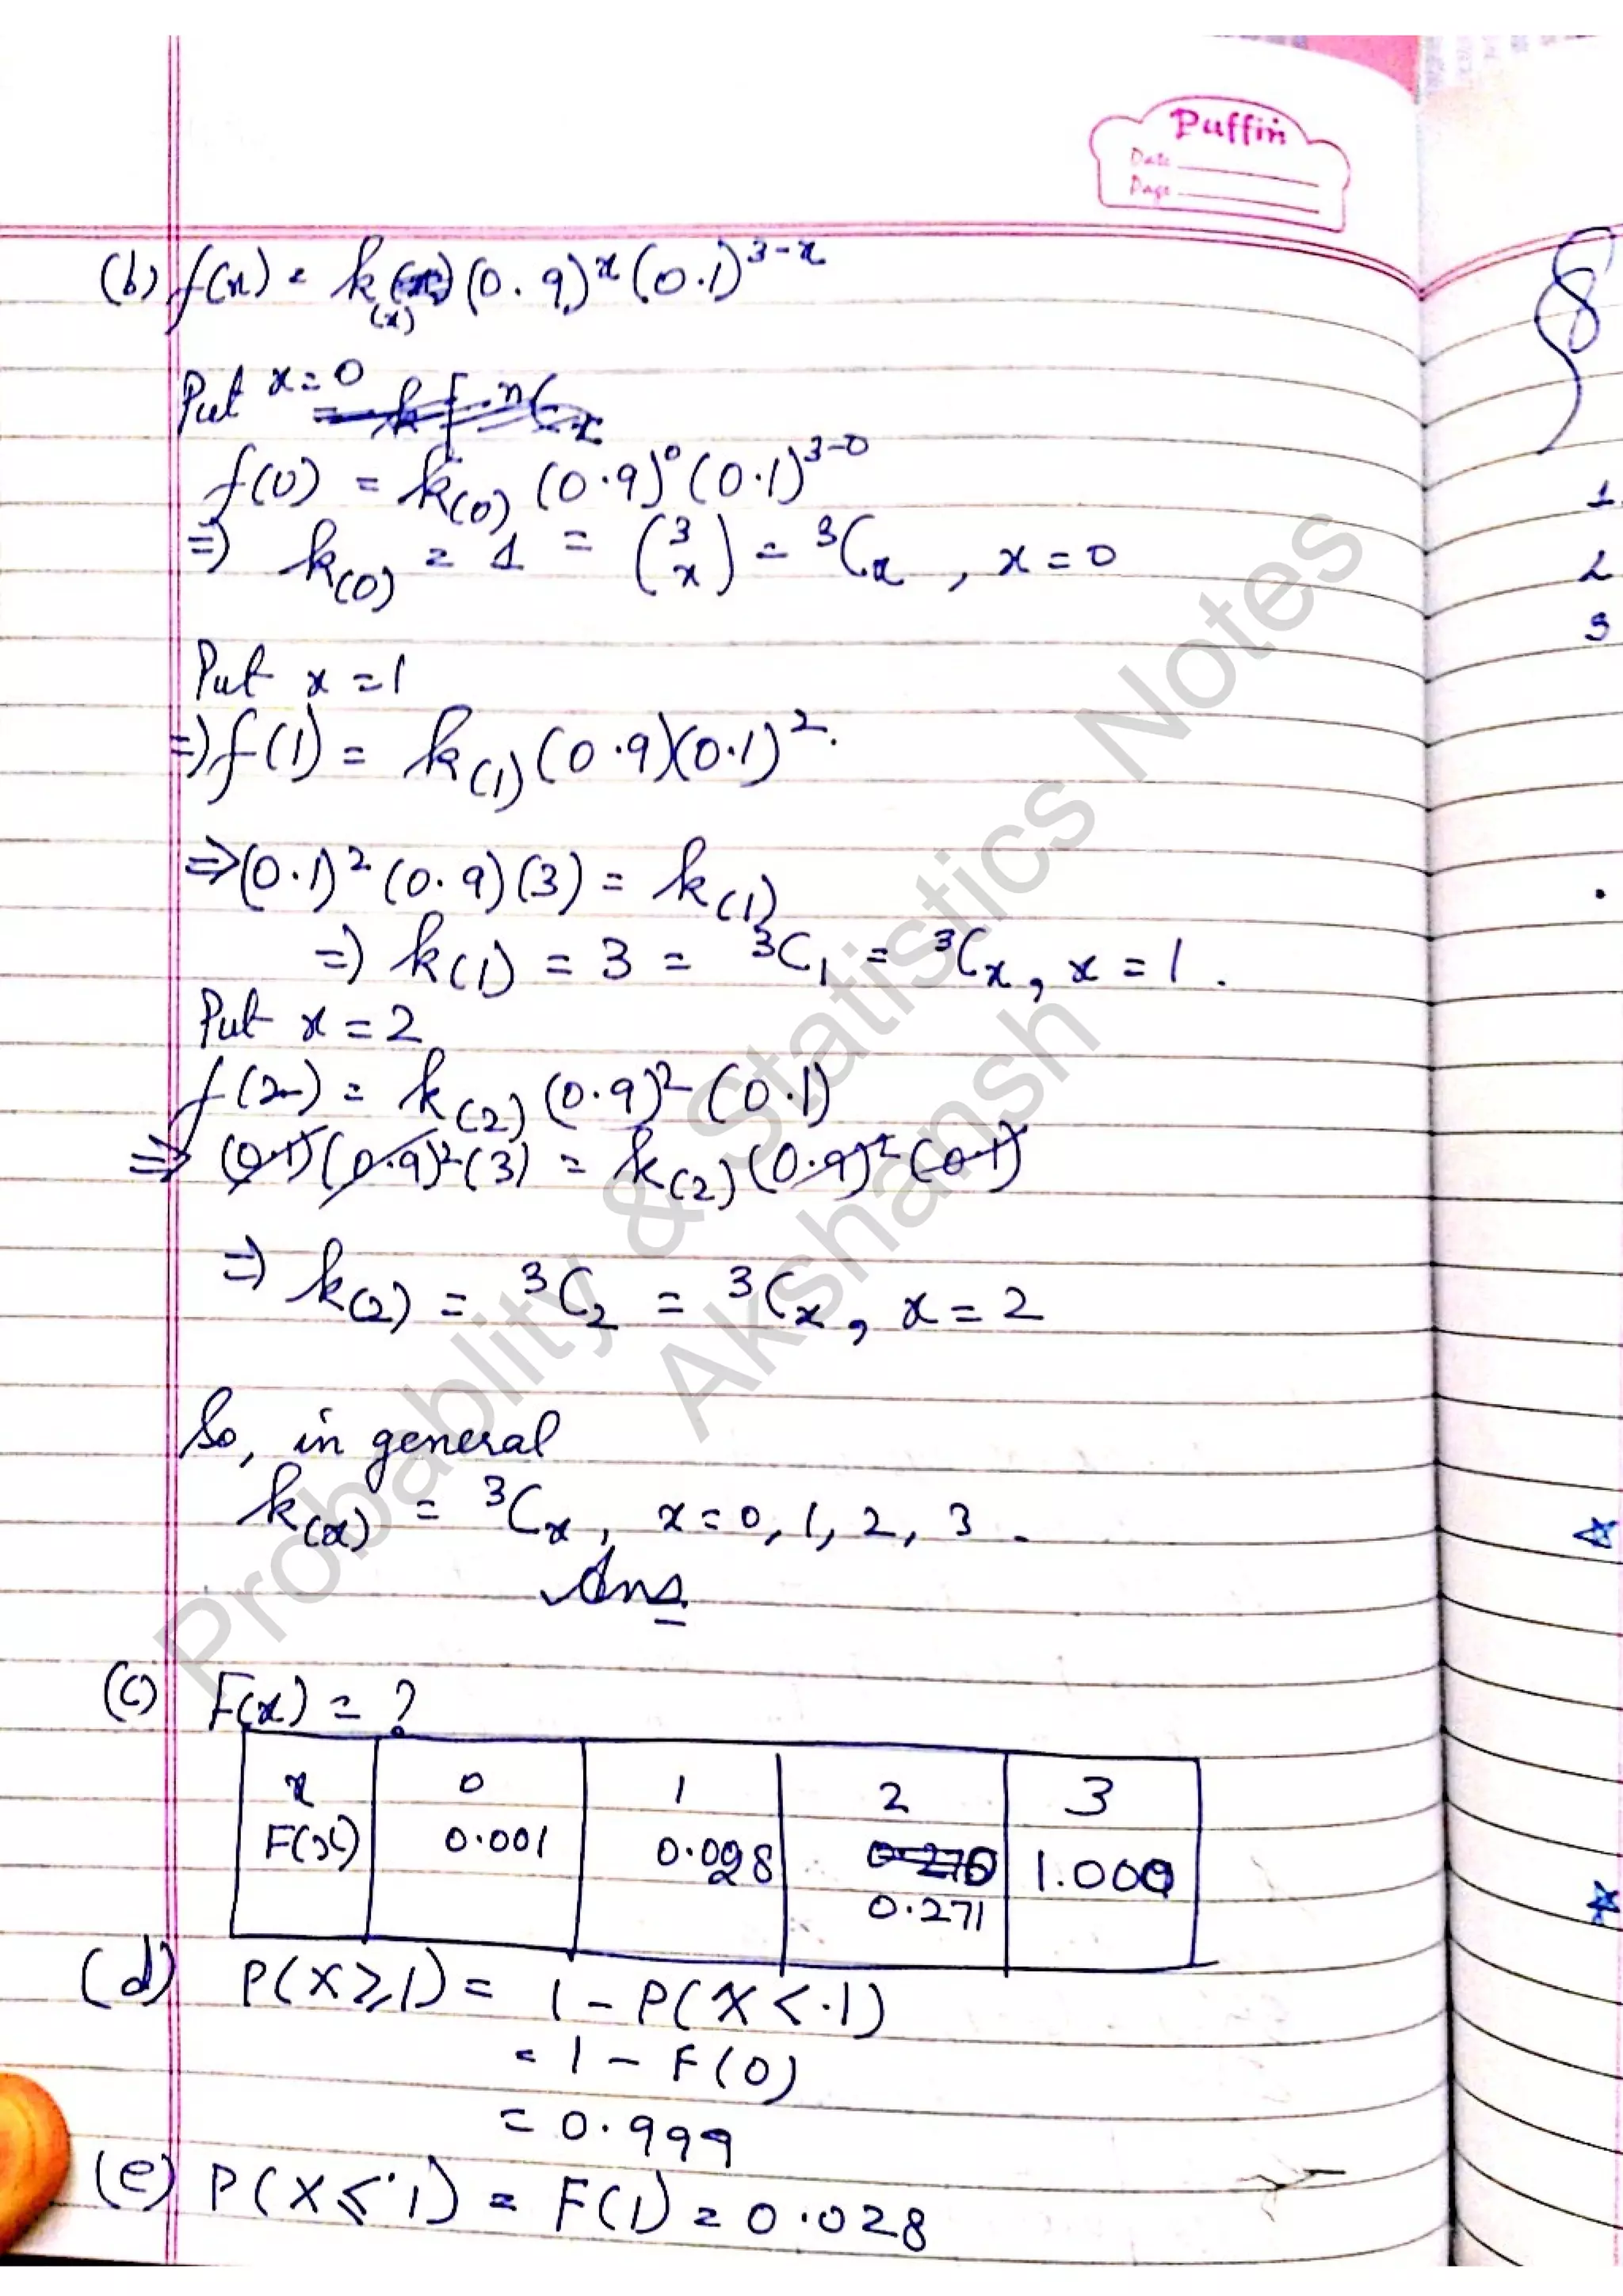 Puffin
Date
Page
(b) f(x) = k(x) (0.9)^x (0.1)^{3-x}
Put x=0
f(0) = k(0) (0.9)^0 (0.1)^{3-0}
⇒ k(0) = 1 = (3 x) = ³Cx , x=0
Put x=1
⇒ f(1) = k(1) (0.9)(0.1)².
⇒ (0.1)² (0.9) (3) = k(1)
⇒ k(1) = 3 = ³C₁ = ³Cx, x=1.
Put x=2
f(2) = k(2) (0.9)² (0.1)
⇒ (0.1)(0.9)²(3) = k(2) (0.9)² (0.1)
⇒ k(2) = ³C₂ = ³Cx, x=2
So, in general
k(x) = ³Cx, x=0, 1, 2, 3.
Ans.
(c) F(x) = ?
x 0 1 2 3
F(x) 0.001 0.028 0.271 1.000
(d) P(X≥1) = 1-P(X<.1)
= 1-F(0)
= 0.999
(e) P(X≤1) = F(1) = 0.028
8
1
2
3
Probablity & Statistics Notes
Akshansh